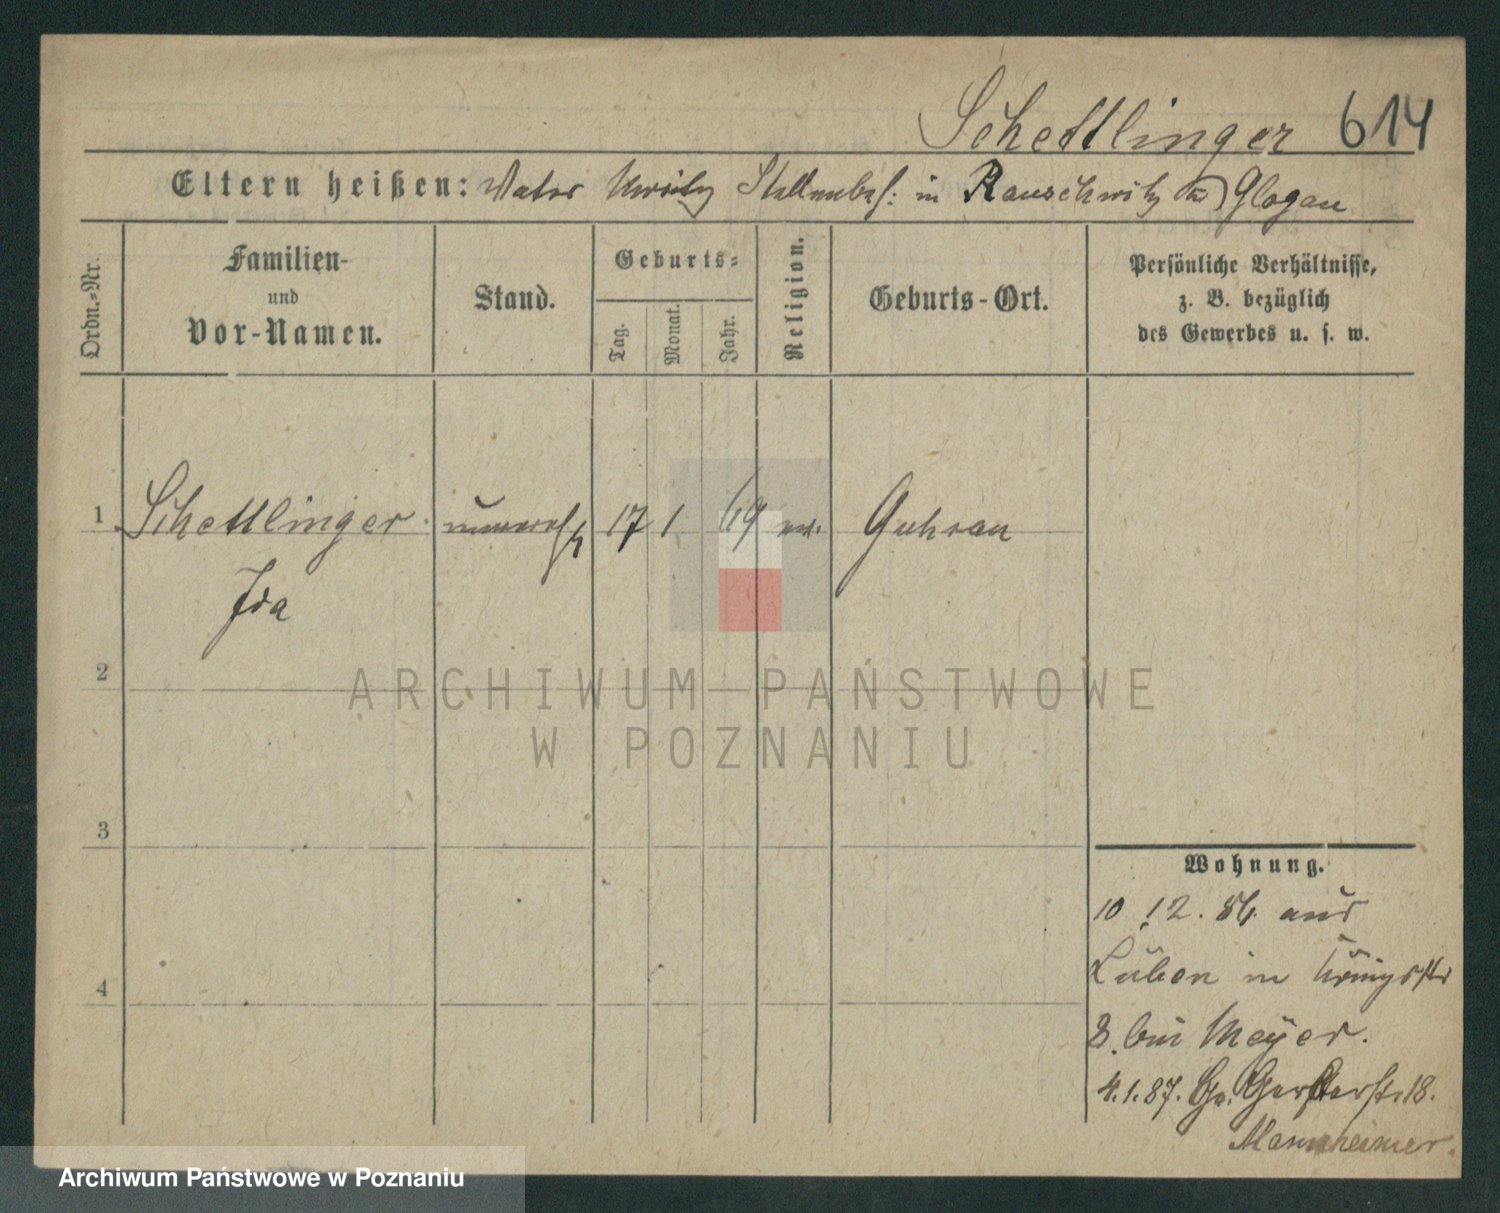 Schettlinger 614
Eltern heißen: Vater Moritz Stellenbes: in Rauschwitz Glogau
Ordn.=Nr.
Familien-
und
Vor-Namen.
Stand.
Geburts=
Tag.
Monat.
Jahr.
Religion.
Geburts-Ort.
Persönliche Verhältnisse,
z. B. bezüglich
des Gewerbes u. s. w.
1 Schettlinger unvereh 17 1 69 ev. Guhrau
Ida
2
ARCHIWUM PAŃSTWOWE
W POZNANIU
3
4
Wohnung.
10.12.86. aus
Lüben in Königsstr
8. bei Meyer.
4.1.87. Gr. Gerberst. 18.
Mannheimer.
Archiwum Państwowe w Poznaniu